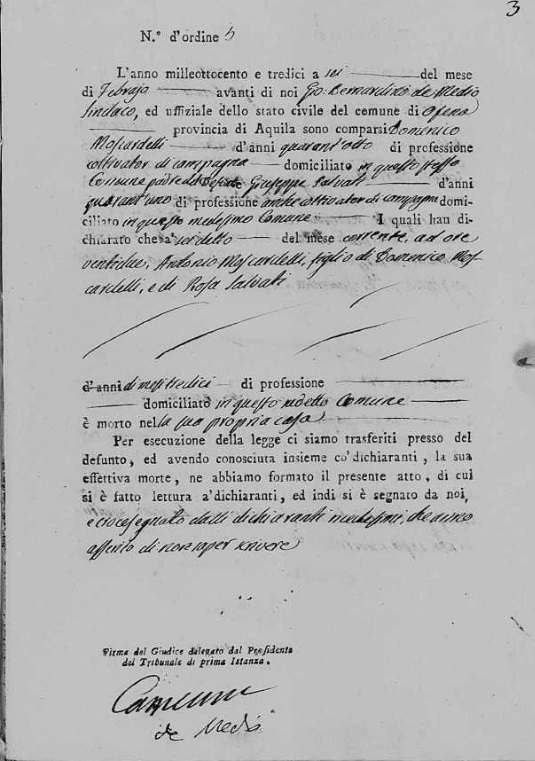 3
N.° d'ordine 5
L'anno milleottocento e tredici a sei del mese
di Febrajo avanti di noi Gio: Bernardino de Medio
Sindaco, ed uffiziale dello stato civile del comune di Ofena
provincia di Aquila sono comparsi Domenico
Moscardelli d'anni quarant'otto di professione
coltivator di campagna domiciliato in questo stesso
Comune padre del Defunto Giuseppe Salvati d'anni
quarant'uno di professione anche coltivator di campagna domi-
ciliato in questo medesimo Comune I quali han di-
chiarato che a' sei detto del mese corrente, ad ore
ventidue, Antonio Moscardelli, figlio di Domenico Mos-
cardelli, e di Rosa Salvati
d'anni di mesi tredici di professione
domiciliato in questo Comune
è morto nella sua propria casa
Per esecuzione della legge ci siamo trasferiti presso del
defunto, ed avendo conosciuta insieme co' dichiaranti, la sua
effettiva morte, ne abbiamo formato il presente atto, di cui
si è fatto lettura a' dichiaranti, ed indi si è segnato da noi,
e crocesegnato dalli dichiaranti medesimi, che anno
asserito di non saper scrivere
Firma del Giudice delegato dal Presidente
del Tribunale di prima Istanza.
de Medio